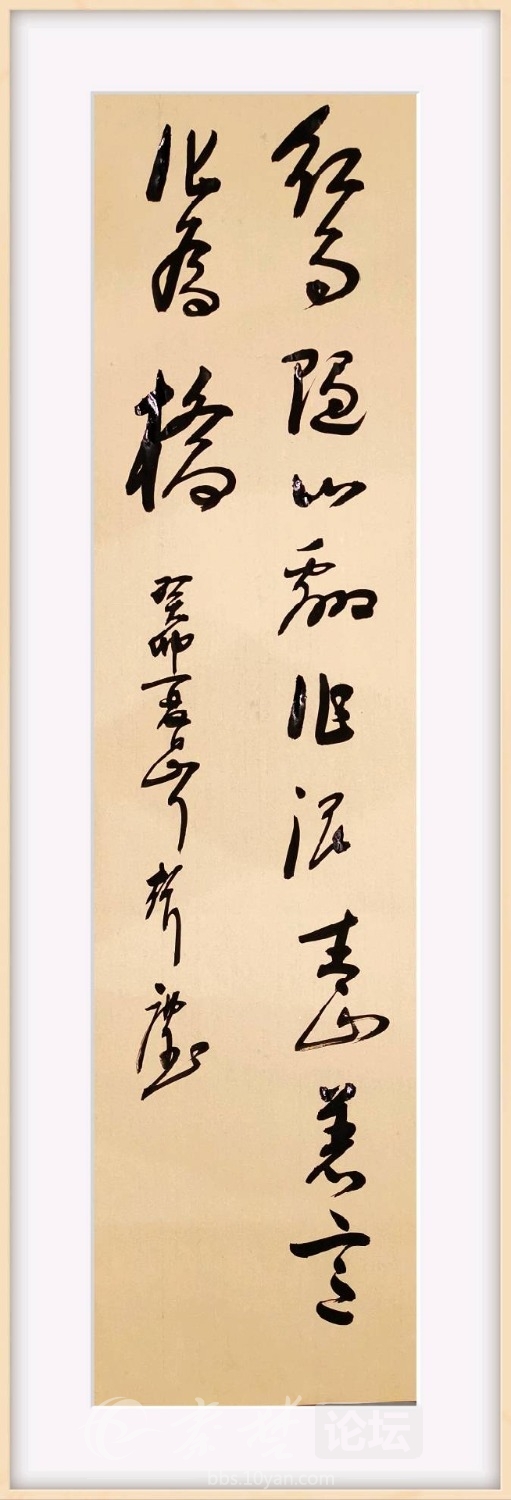 红雨随心翻作浪青山着意
化为橋
癸卯夏
秦楚论坛
bbs.10yan.com